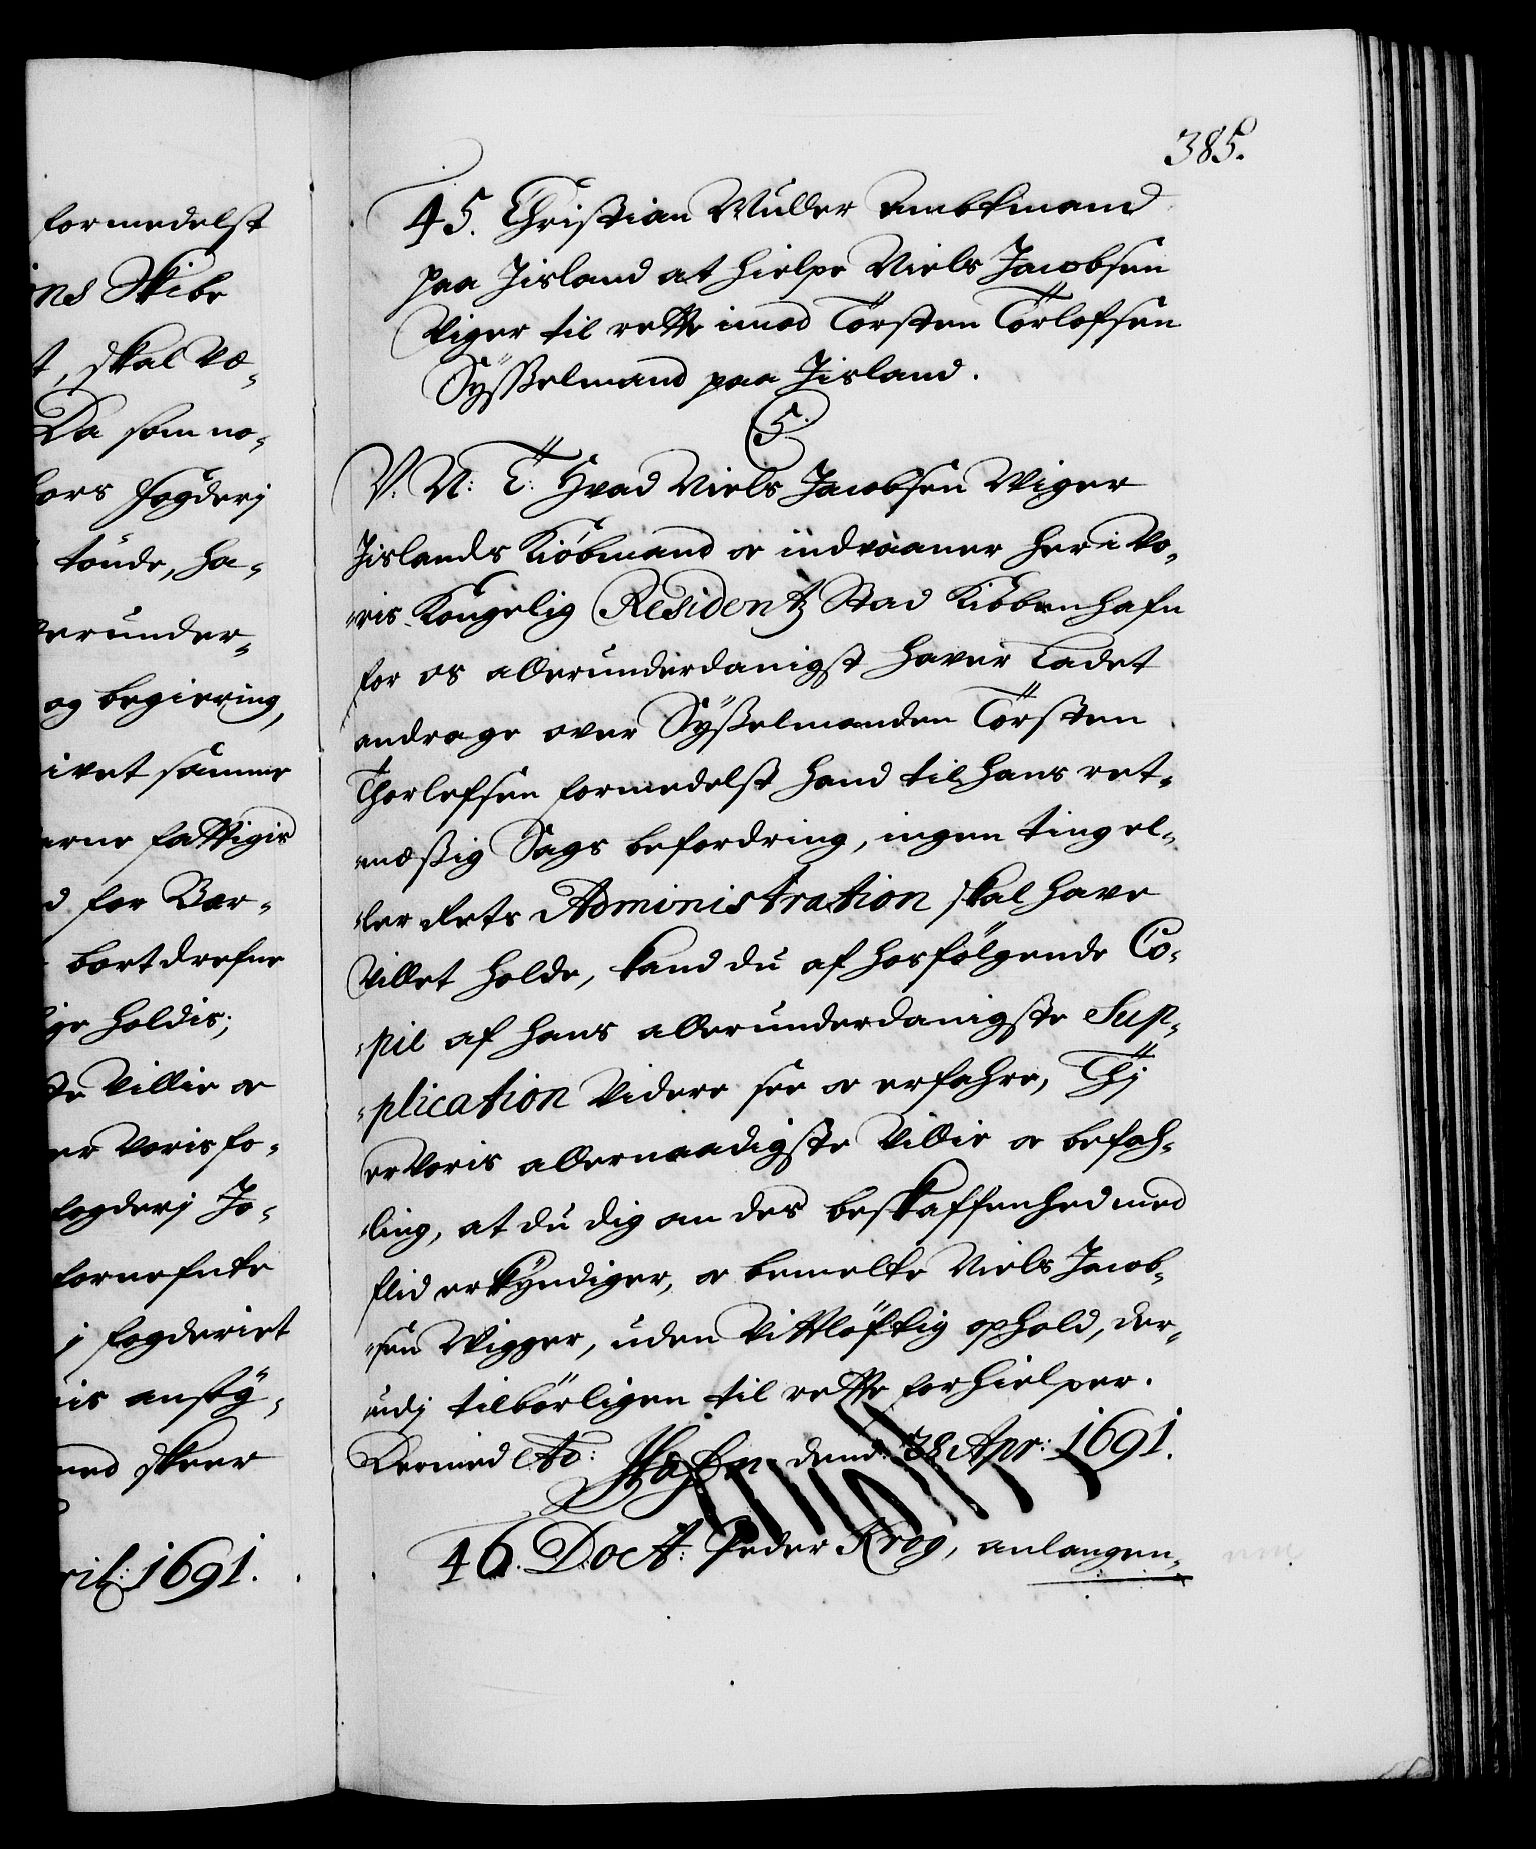 385.
formedelst
ns Skibe
t, skal Væ-
Da som no-
fogderj
tönde, ha-
erunder-
og begiering,
ivet samme
erne fattigis
d for Bær-
bortdrefne
ige holdis;
te Villie oc
er Voris fo-
fogderj Jo-
fornefnte
j fogderiet
is ansø-
ned skeer
ril: 1691.
45. Christian Müller Ambtmand
paa Jisland at hielpe Niels Jacobsen
Viger til rette imod Torsten Torlofsen
Sysselmand paa Jisland.
5.
V. N: T: Hvad Niels Jacobsen Wiger
Jislands Kiöbmand oc indvaaner her i Vo-
ris Kongelig Residentz Stad Kiöbenhafn
for os allerunderdanigst haver Ladet
andrage over Sysselmanden Torsten
Thorlefsen formedelst hand til hans ret-
mæssig Sags befordring, ingen ting el-
ler Rets Administration skal have
Villet holde, kand du af hosfölgende Co-
pie af hans allerunderdanigste Sup-
plication Videre see oc erfahre, Thj
er Voris allernaadigste Villie oc befah-
ling, at du dig om des beskaffenhed med
flid erkyndiger, oc bemelte Niels Jacob-
sen Wigger, uden Vittlöftig ophold, der-
udj tilbörligen til rette forhielper.
Dermed etc: Hafn. dend: 28 Apr: 1691.
46. Doct: Peder Krog, anlangen-